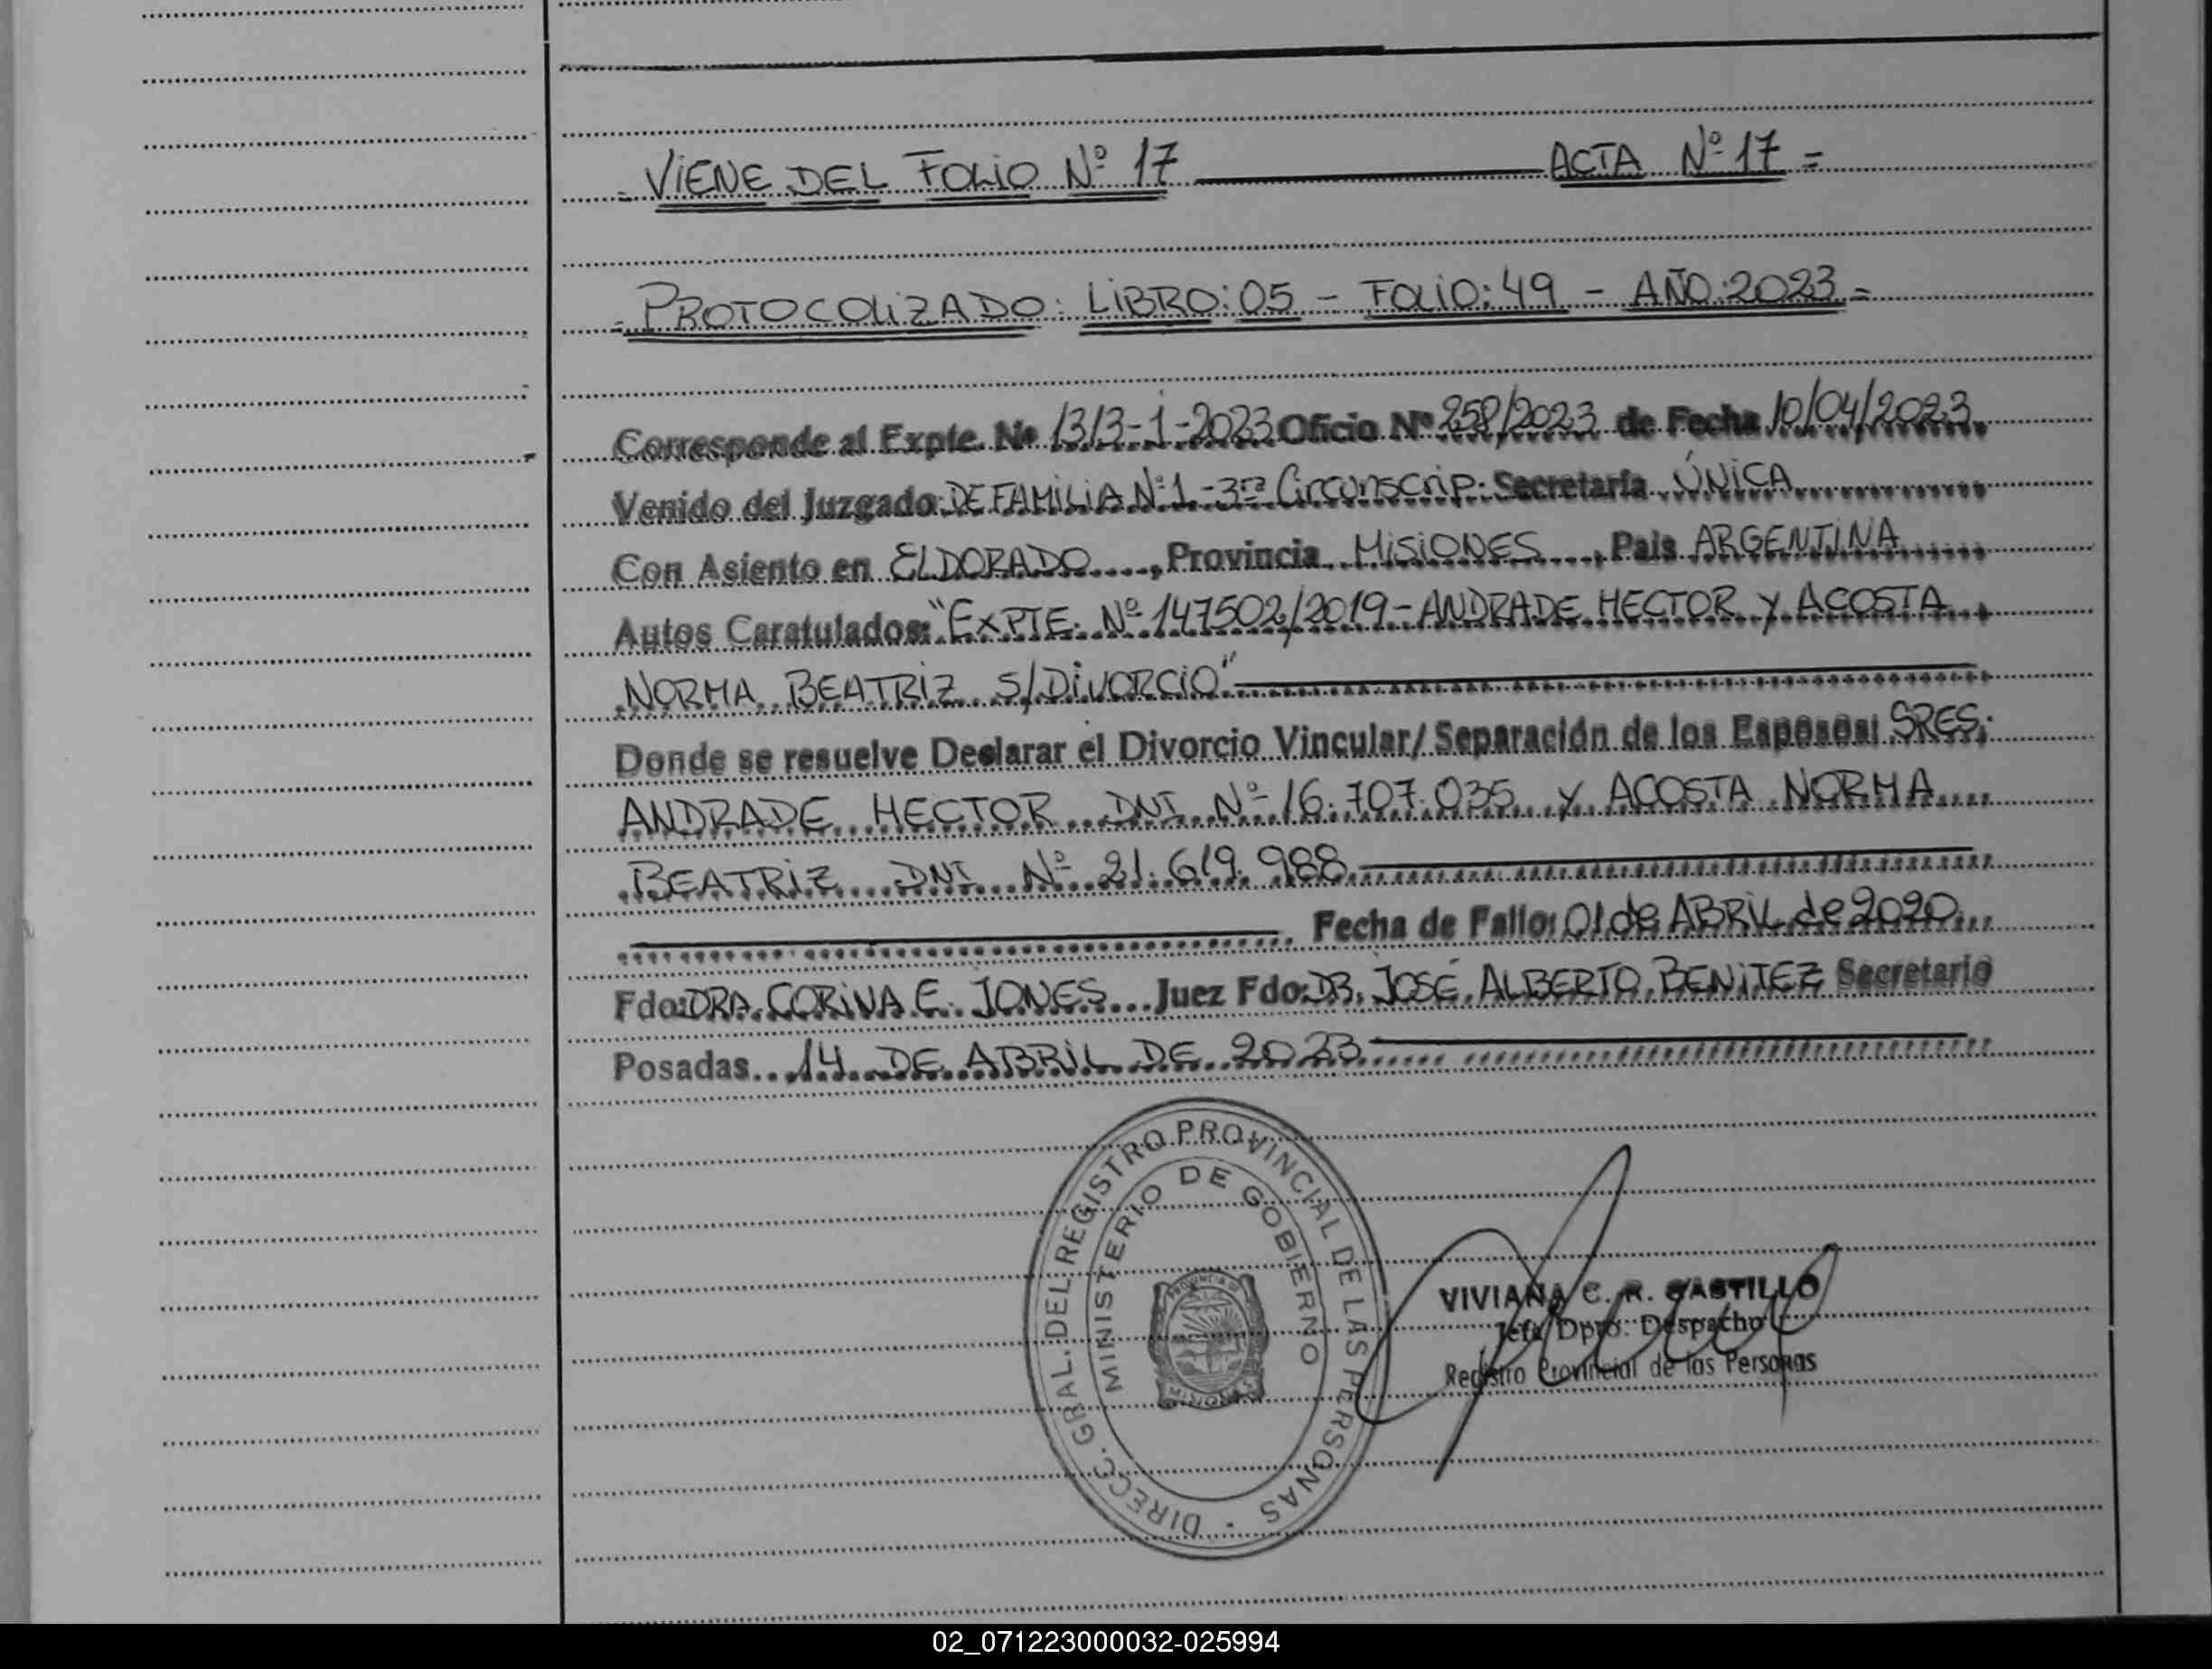 = VIENE DEL FOLIO Nº 17 ACTA Nº 17 =
= PROTOCOLIZADO: LIBRO: 05 - FOLIO: 49 - AÑO: 2023 =
Corresponde al Expte. Nº 1313-1-2023 Oficio Nº 258/2023 de Fecha 10/04/2023
Venido del Juzgado: DE FAMILIA Nº 1 - 3ra Circunscrip: Secretaría ÚNICA
Con Asiento en ELDORADO, Provincia MISIONES, País ARGENTINA
Autos Caratulados: "EXPTE. Nº 147502/2019 - ANDRADE HECTOR Y ACOSTA
NORMA BEATRIZ S/DIVORCIO"
Donde se resuelve Declarar el Divorcio Vincular/ Separación de los Esposos: SRES:
ANDRADE HECTOR DNI Nº 16.707.035 Y ACOSTA NORMA
BEATRIZ DNI Nº 21.619.988
Fecha de Fallo: 01 de ABRIL de 2020
Fdo: DRA. CORINA E. JONES Juez Fdo: DR. JOSÉ ALBERTO BENITEZ Secretario
Posadas 14 DE ABRIL DE 2023
DIRECC. GRAL. DEL REGISTRO PROVINCIAL DE LAS PERSONAS
MINISTERIO DE GOBIERNO
PROVINCIA DE
MISIONES
VIVIANA C. R. CASTILLO
Jefa Dpto. Despacho
Registro Provincial de las Personas
02_071223000032-025994